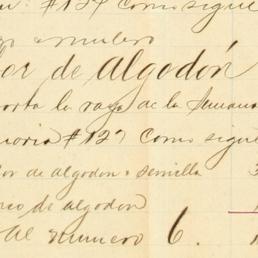 #127 como sigue
numero
or de algodón
orta la raya de la semana
oria #127 Como sigue
or de algodon semilla
co de algodon
Al numero 6.